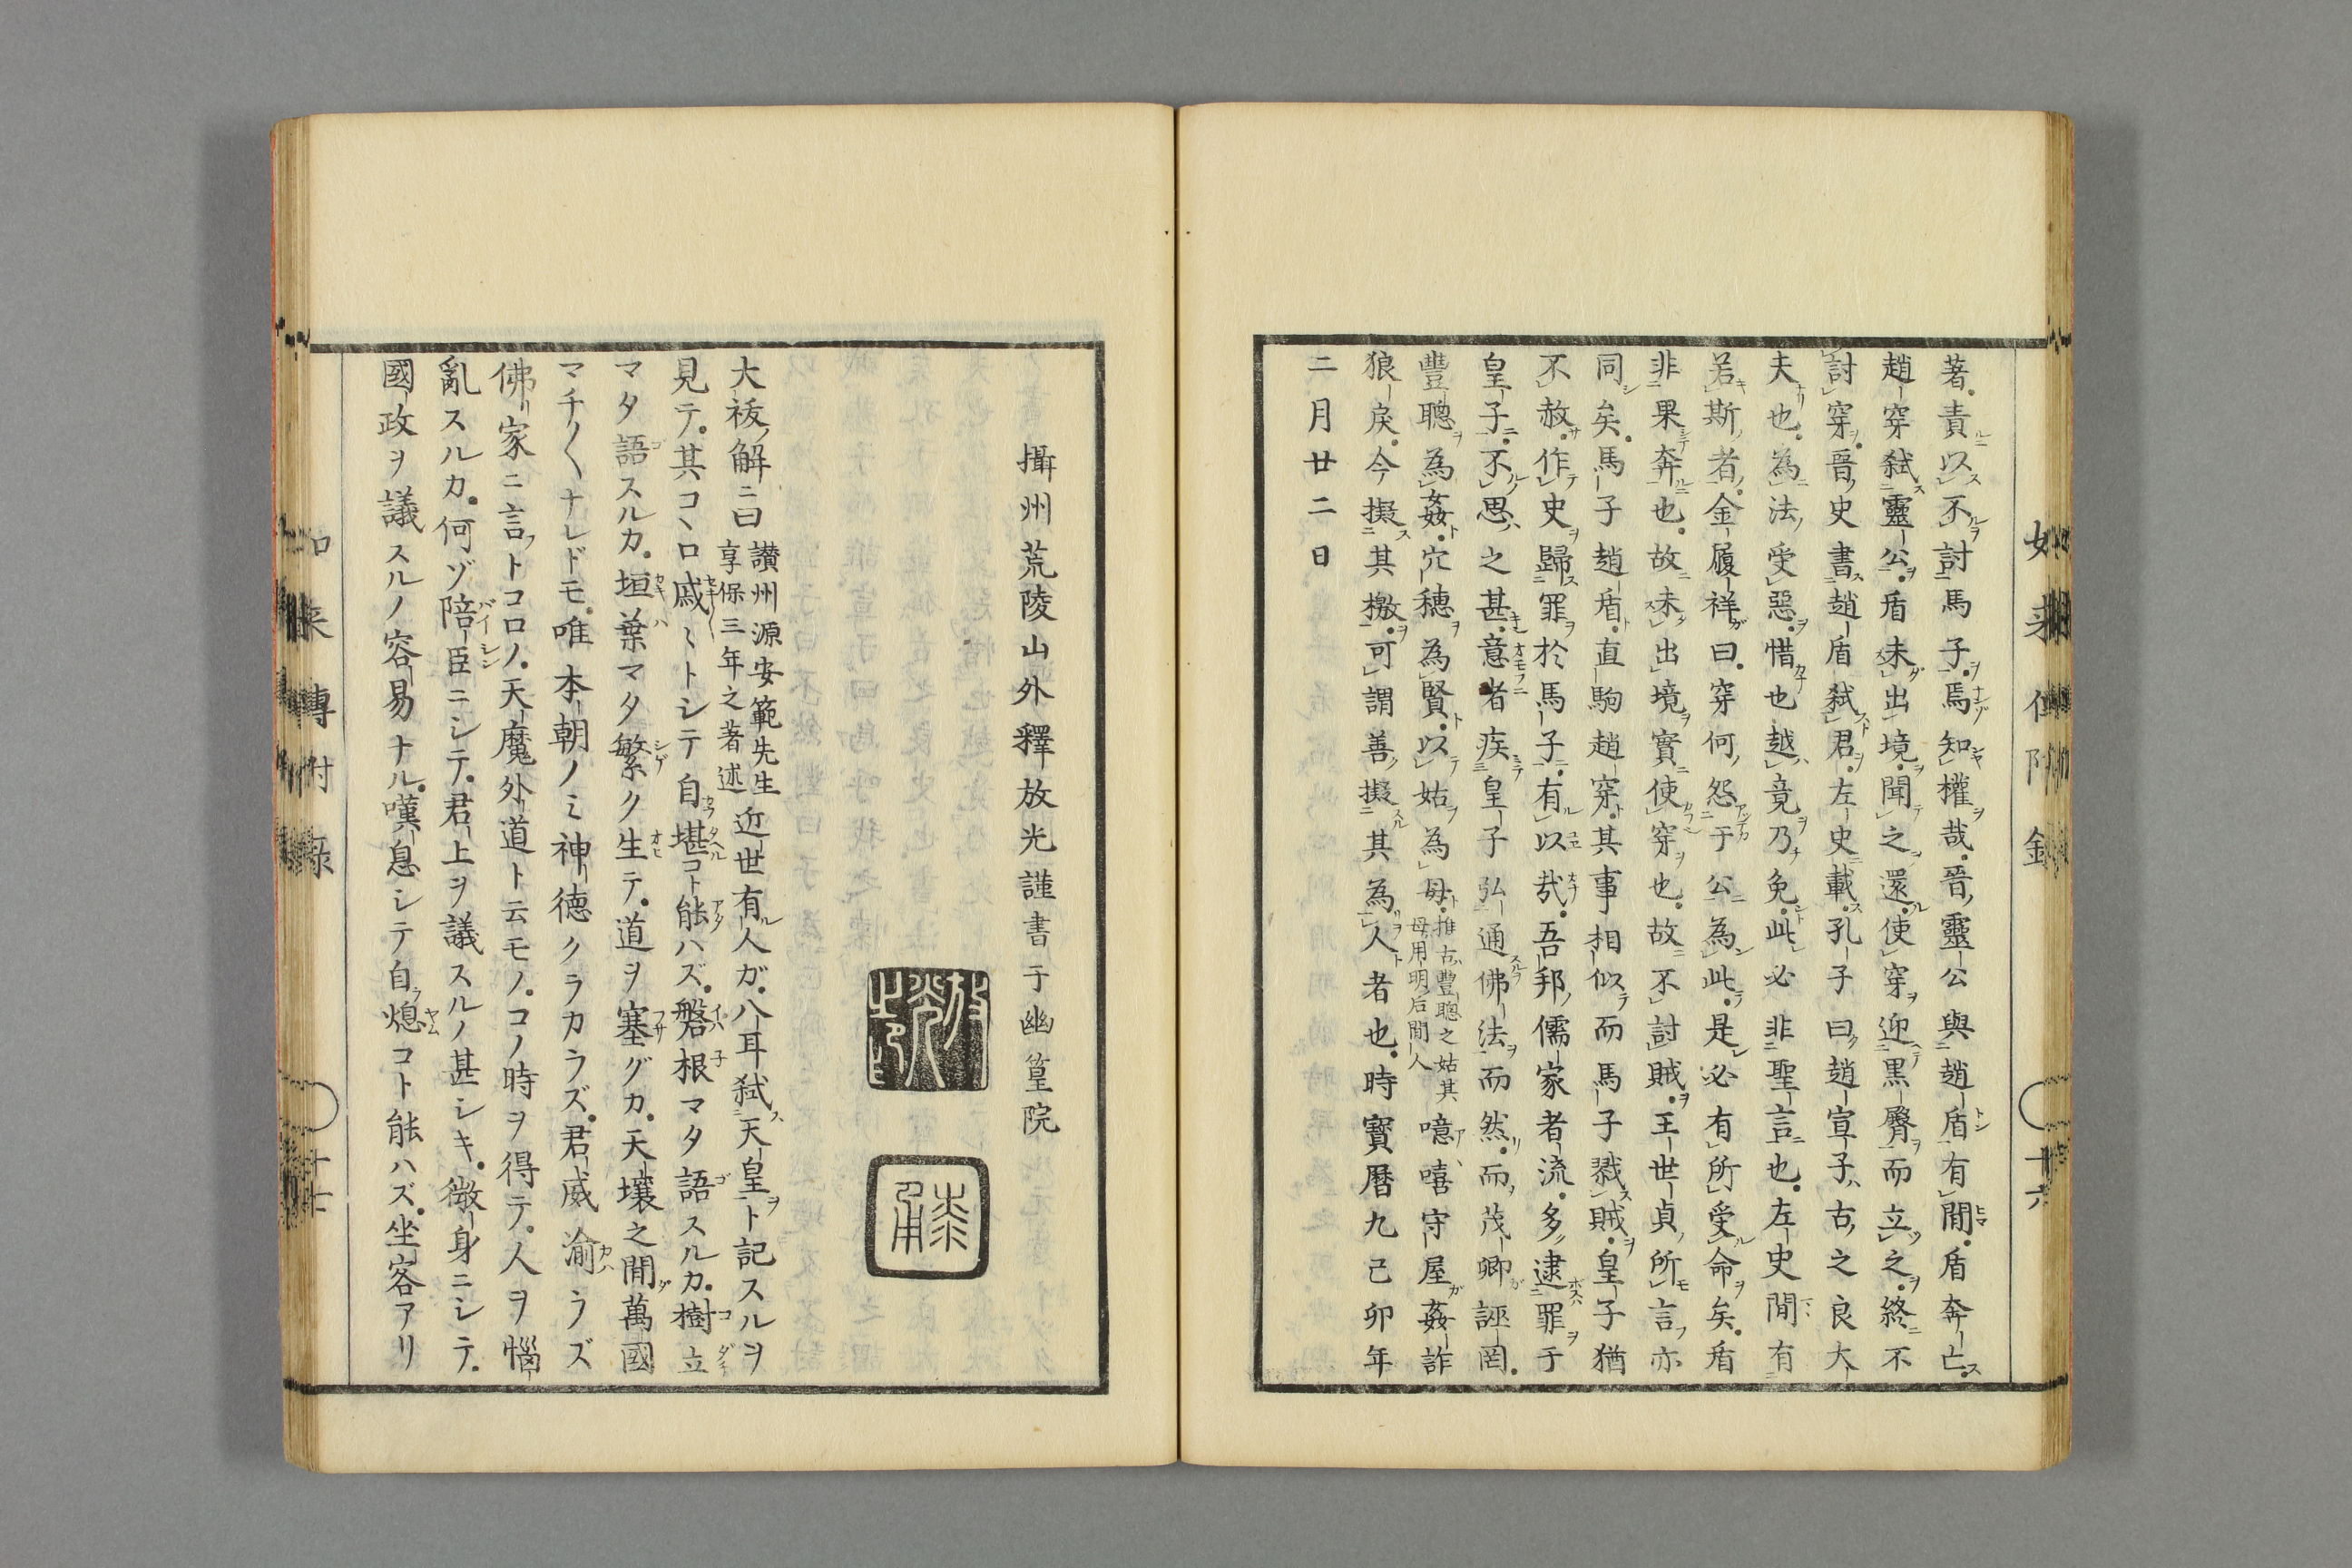 著責以不討馬子焉知權哉晉靈公與趙盾有間盾奔亡
趙穿弑靈公盾未出境聞之還使穿迎黑臀而立之終不
討穿晉史書趙盾弑君左史載孔子曰趙宣子古之良大
夫也為法受惡惜也越竟乃免此必非聖言也左史間有
若斯者金履祥曰穿何怨于公為此是必有所受命矣盾
非果奔也故未出境實使穿也故不討賊王世貞所言亦
同矣馬子趙盾直駒趙穿其事相似而馬子戮賊皇子猶
不赦作史歸罪於馬子有以哉吾邦儒家者流多逮罪于
皇子不思之甚意者疾皇子弘通佛法而然而茂卿誣罔
豐聰為姦穴穗為賢以姑為母推古豐聰之姑其母用明后間人噫嘻守屋姦詐
狼戾今擬其檄可謂善擬其為人者也時寶曆九己卯年
二月廿二日
攝州荒陵山外釋放光謹書于幽篁院
大祓ノ解ニ曰讃州源安範先生享保三年之著述近世有ル人ガ八耳弑ス天皇ヲト記スルヲ
見テ其コヽロ戚〻トシテ自堪コト能ハズ磐根マタ語スルカ樹立
マタ語スルカ垣葉マタ繁ク生テ道ヲ塞グカ天壤之間萬國
マチ〱ナレドモ唯本朝ノミ神德クラカラズ君威渝ラズ
佛家ニ言フトコロノ天魔外道ト云モノコノ時ヲ得テ人ヲ惱
亂スルカ何ゾ陪臣ニシテ君上ヲ議スルノ甚シキ微身ニシテ
國政ヲ議スルノ容易ナル嘆息シテ自熄コト能ハズ坐客アリ